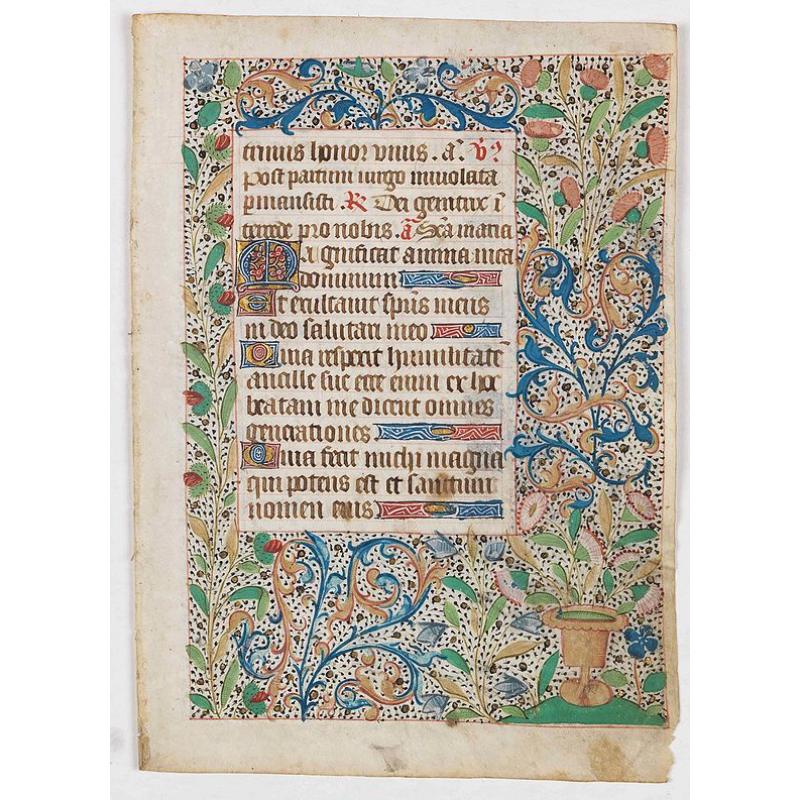 trinus honor unus . a'. V̓
Post partum uirgo inuiolata
p̄mansisti . R̸ Dei genitrix ī
tercede pro nobis. ā Sc̄a maria
Magnificat anima mea
dominum
Et exultauit sp̄us meus
in deo salutari meo
Quia respexit humilitatē
ancille sue ecce enim ex hoc
beatam me dicent omnes
generationes
Quia fecit michi magna
qui potens est et sanctum
nomen eius